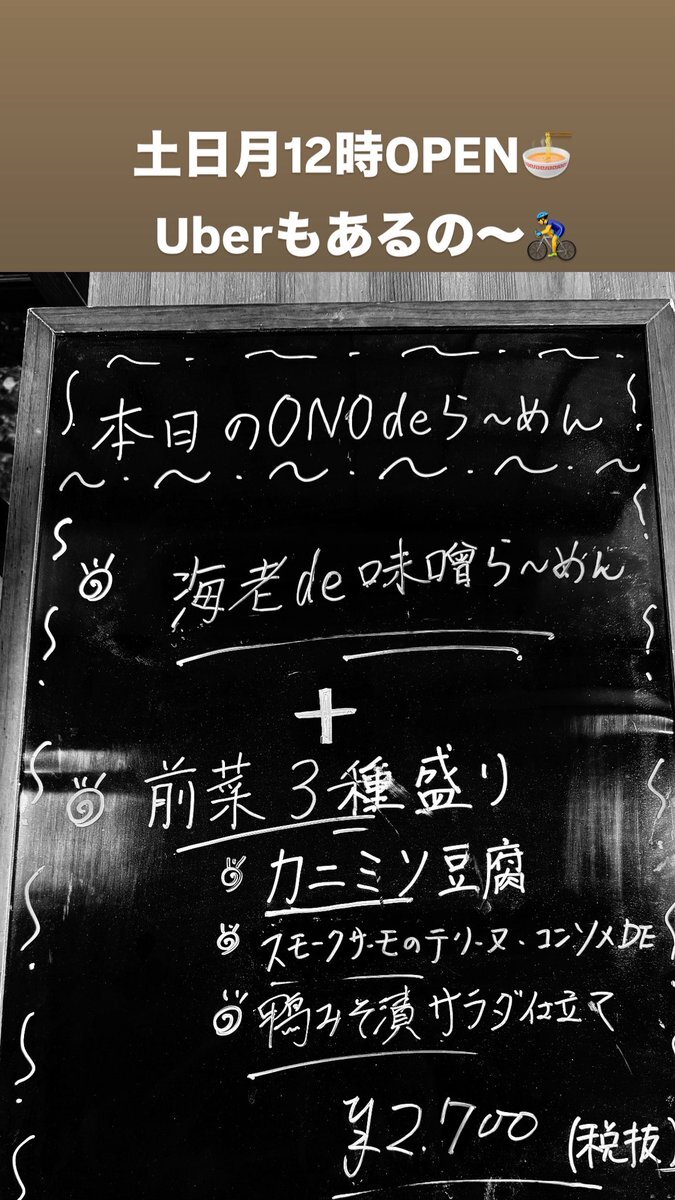 土日月12時OPEN🍜
Uberもあるの〜🚴
本日のONOdeら〜めん
海老de味噌ら〜めん
+
前菜3種盛り
カニミソ豆腐
スモークサーモのテリーヌ・コンソメDE
鴨みそ漬サラダ仕立て
¥2.700(税抜)